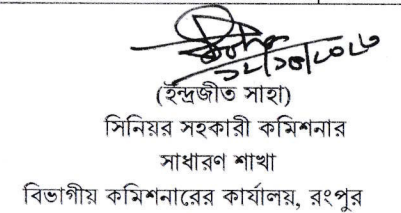 (ইন্দ্রজীত সাহা)
সিনিয়র সহকারী কমিশনার
সাধারণ শাখা
বিভাগীয় কমিশনারের কার্যালয়, রংপুর